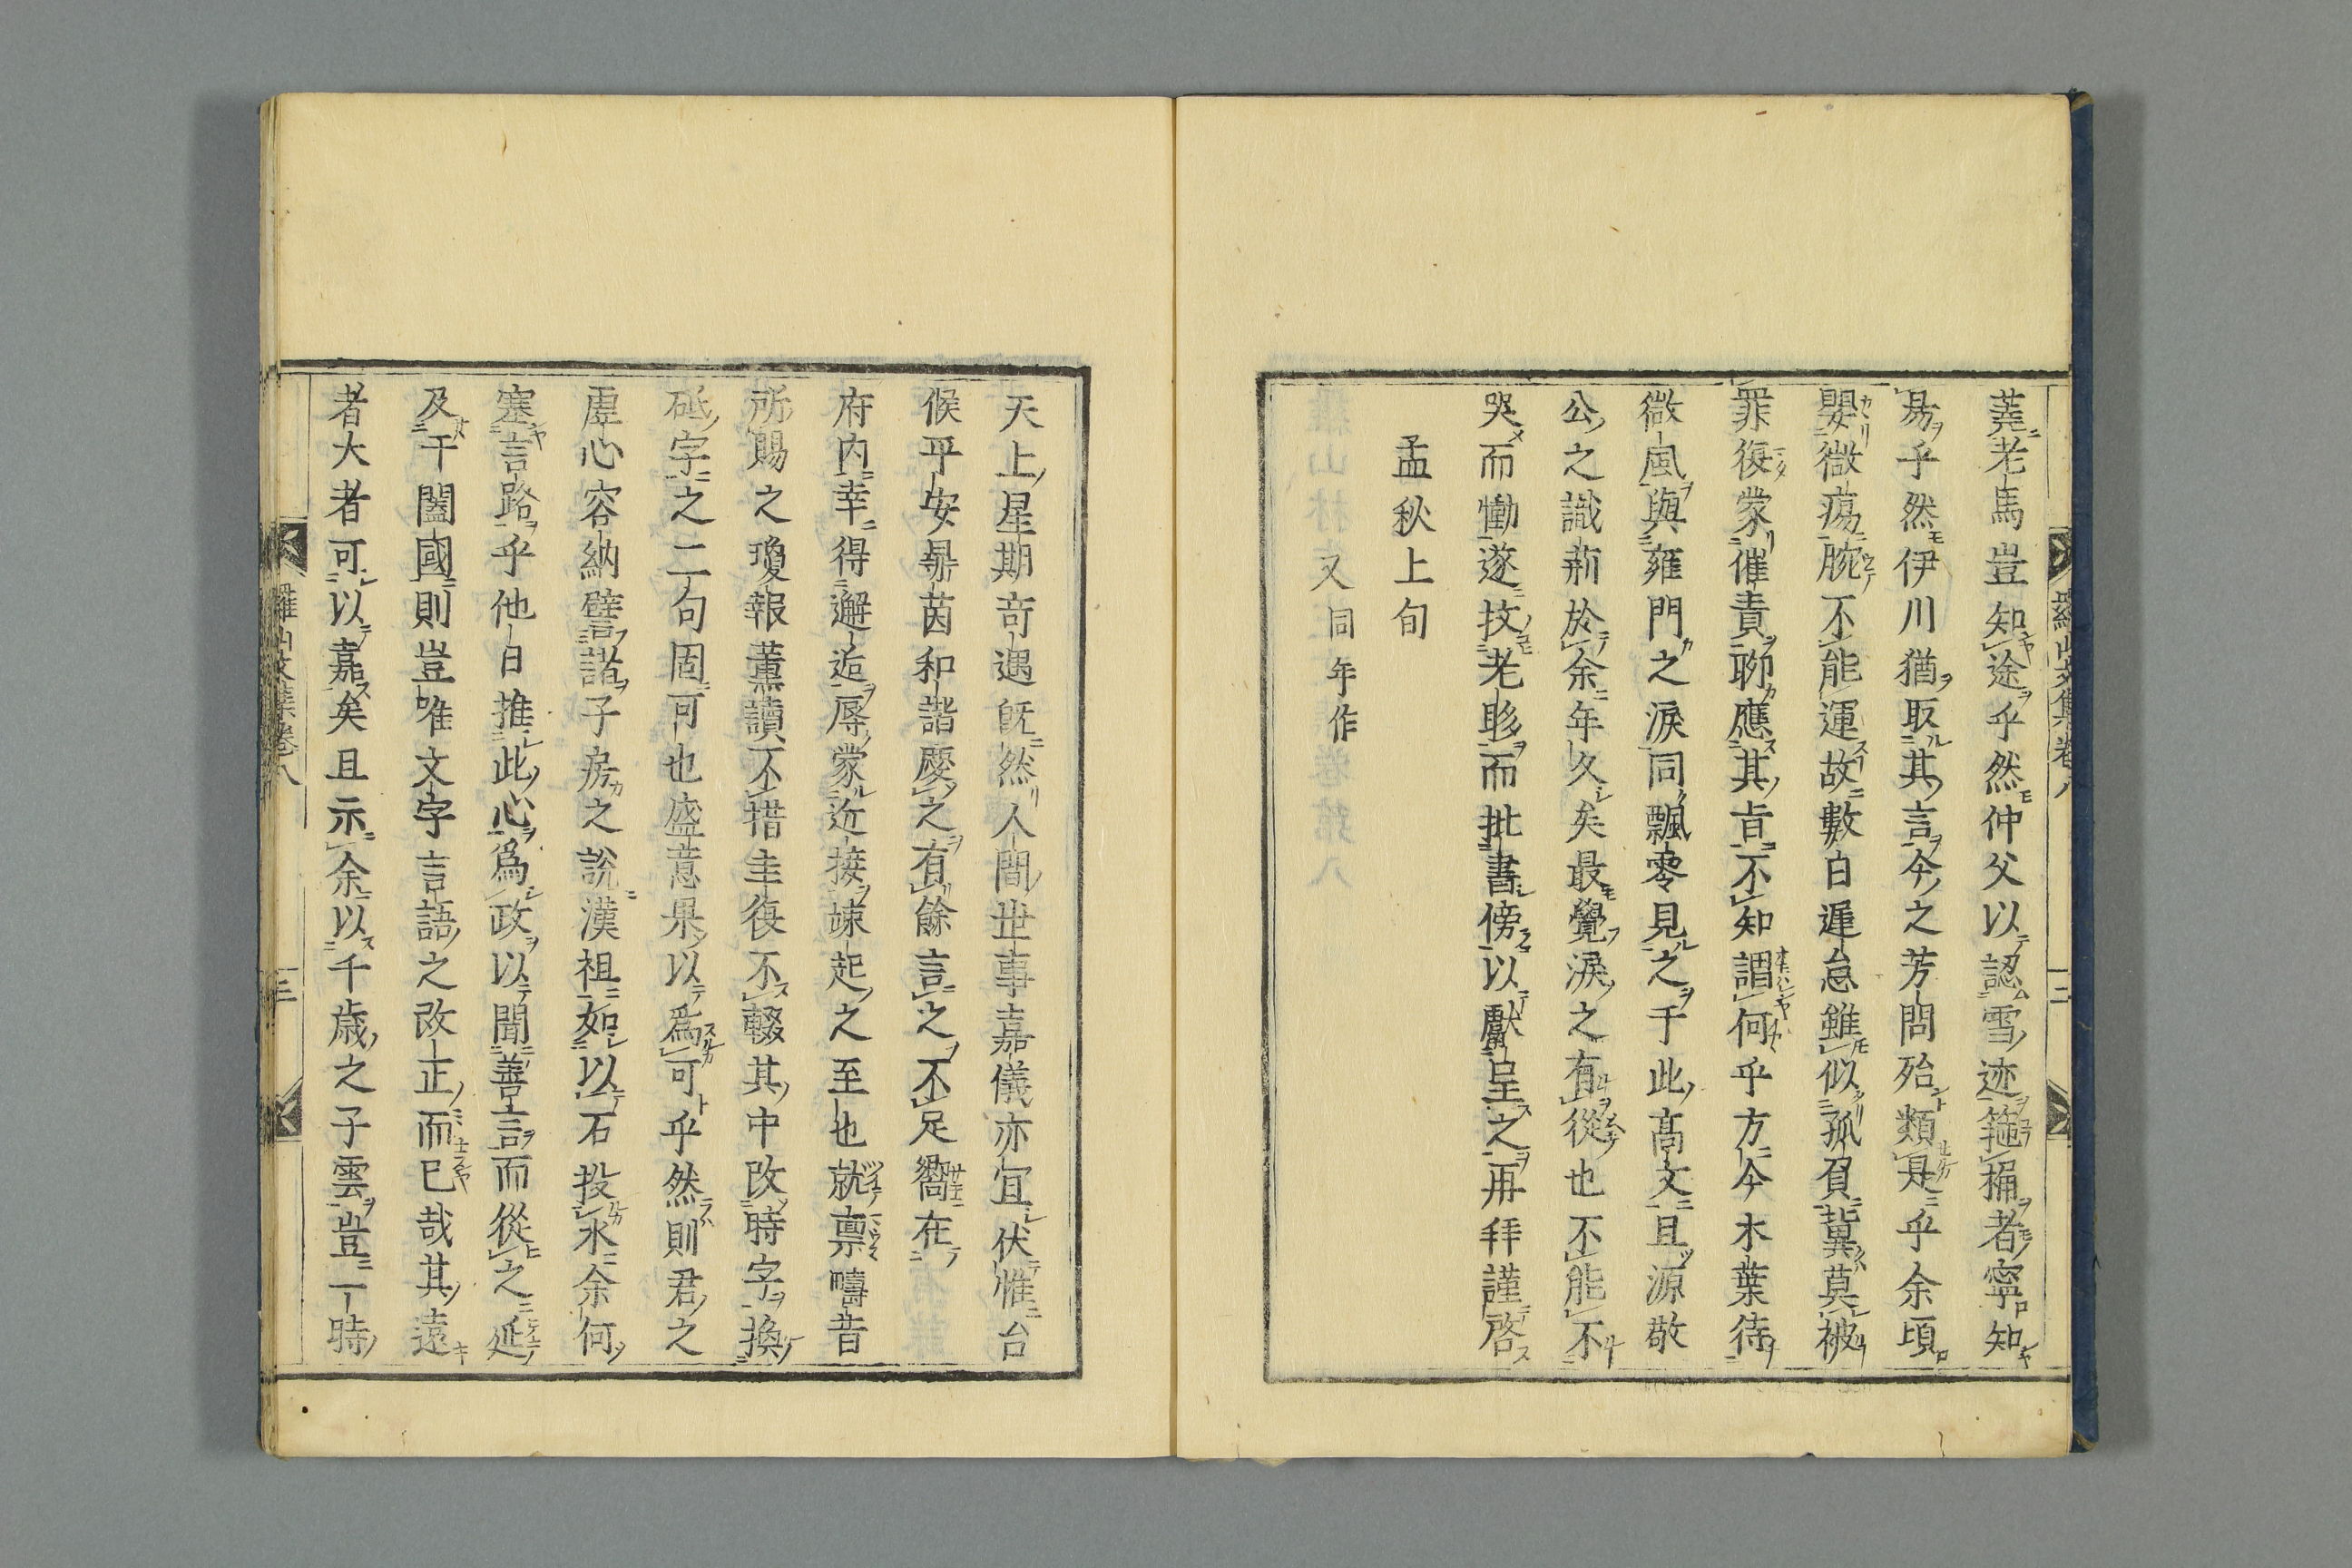 蕘老馬豈知途乎然仲父以認雪迹箍桶者寧知
易乎然伊川猶取其言今之芳問殆類是乎余頃
嬰微瘍腕不能運故數白遲怠雖似孤負冀莫被
罪復蒙催責聊應其旨不知謂何乎方今木葉待
微風與雍門之淚同飄零見之于此高文且源敬
公之識荊於余年久矣最覺淚之有從也不能不
哭而慟遂抆老眵而批書傍以獻呈之再拜謹啓
孟秋上旬
又同年作
天上星期奇遇既然人間世事嘉儀亦宜伏惟台
候平安鼎茵和諧慶之有餘言之不足嚮在
府内幸得邂逅辱蒙近接竦起之至也就禀疇昔
所賜之瓊報薰讀不措圭復不輟其中改時字換
砥字之二句固可也盛意果以爲可乎然則君之
虚心容納譬諸子房之說漢祖如以石投水余何
塞言路乎他日推此心爲政以聞善言而從之延
及于闔國則豈唯文字言語之改正而已哉其遠
者大者可以嘉矣且示余以千歳之子雲豈一時
羅山文集卷八
三